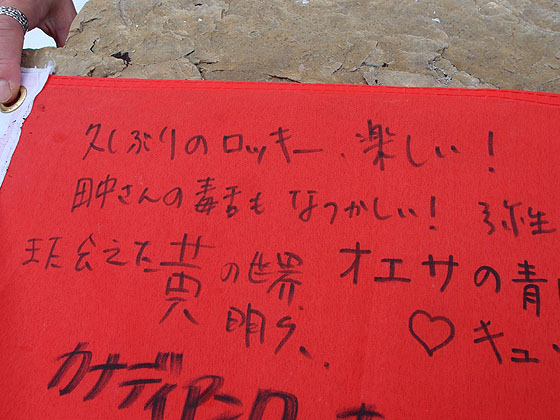 久しぶりのロッキー、楽しい！
田中さんの毒舌もなつかしい！ 弥生
また会えた黄の世界 明り、
オエサの青
♡キュ
カナディアンロ